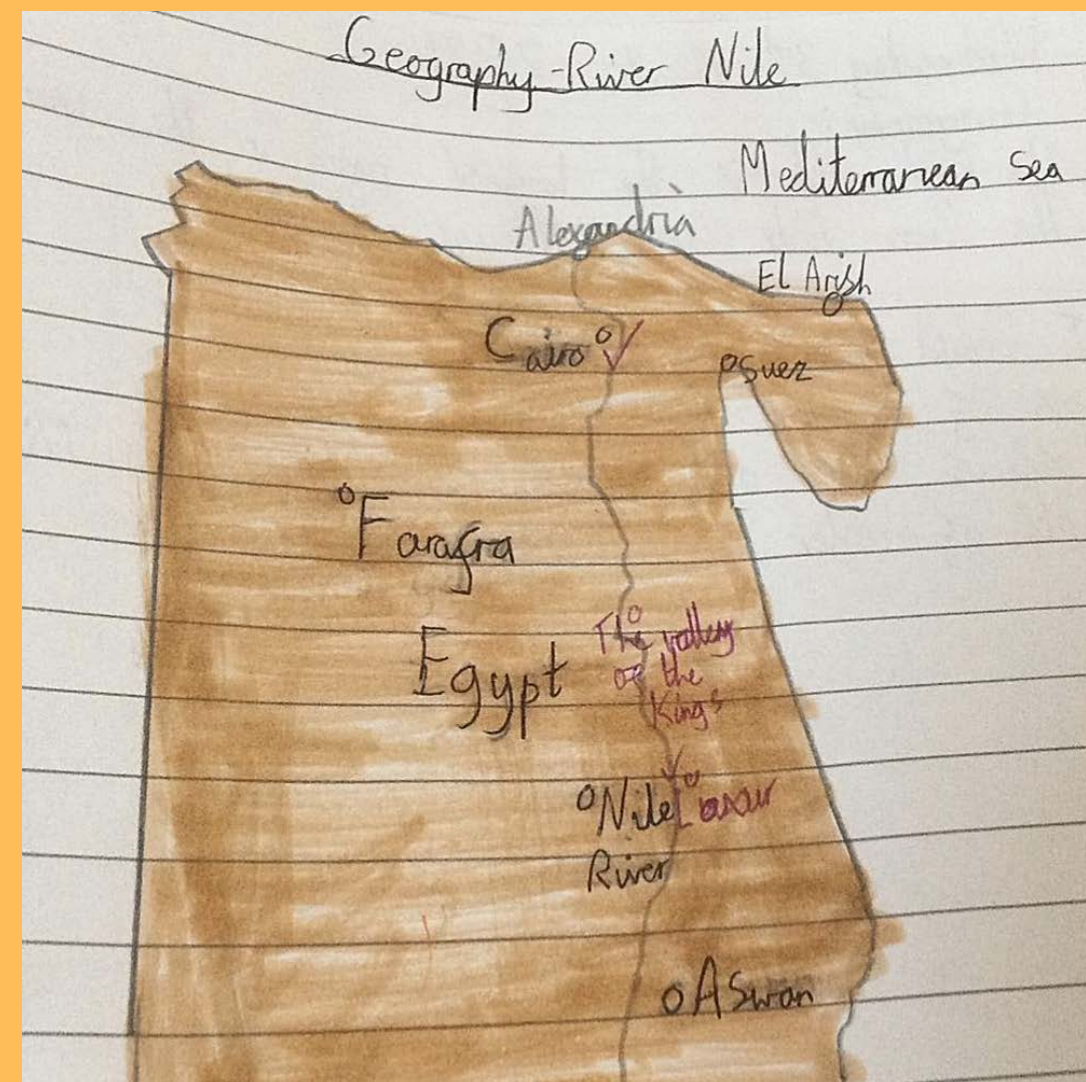 Geography - River Nile
Mediterranean Sea
Alexandria
El Arish
Cairo
Suez
Farafra
The valley
of the
Kings
Egypt
Nile
Luxur
River
ASwan